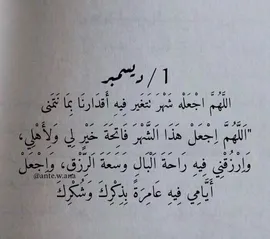 1 / ديسمبر
اللَّهُمَّ اجْعَلْه شَهْرَ تتَغير فيه أَقدارنَا بِمَا نَتَمَنى
"اَللَّهُمَّ اِجْعَلْ هَذَا اَلشَّهْرَ فَاتِحَةَ خَيْرٍ لِي وَلِأَهْلِي،
وَارْزُقْنِي فِيهِ رَاحَةَ اَلْبَالِ وَسَعَةَ اَلرِّزْقِ، وَاِجْعَلْ
أَيَّامِي فِيهِ عَامِرَةً بِذِكْرِكَ وَشُكْرِكَ
@ante.w.ana